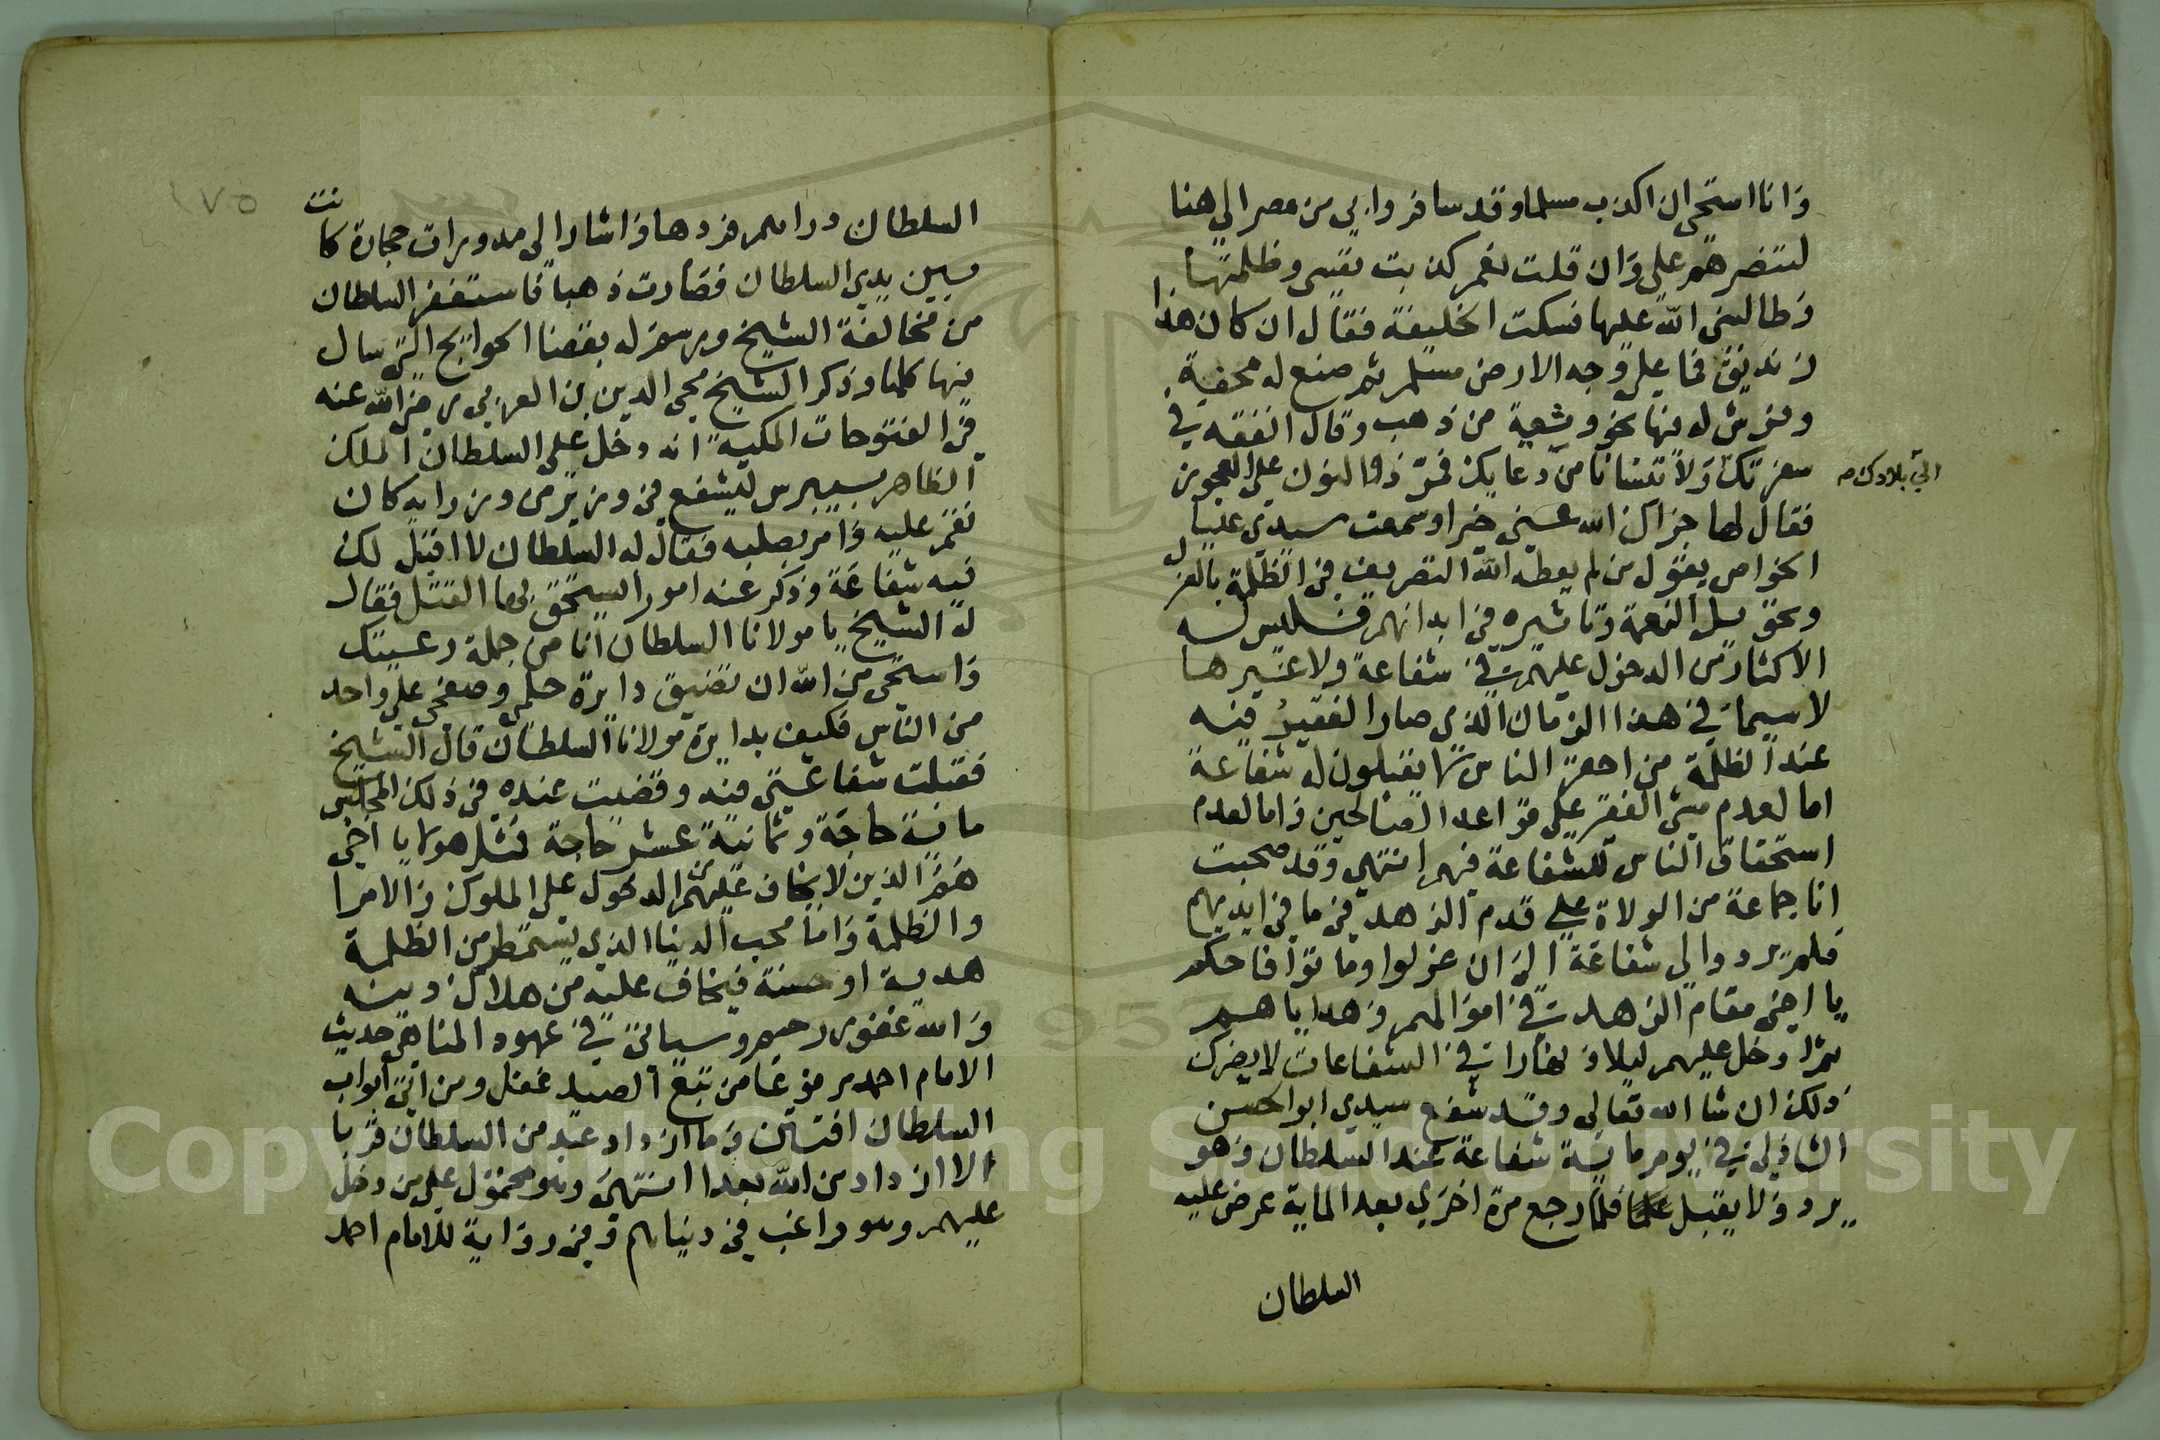 وانا استحي ان اكذب مسلما وقد سافروا بي من مصر الي هنا
لتنصرهم علي وان قلت نعم كذبت نفسي وظلمتها
وطالبني الله عليها فسكت الخليفة فقال ان كان هذا
زنديق فما علي وجه الارض مسلم ثم صنع له محفة
وفرش له فيها نحو وشيبة من ذهب وقال انفقه في
سفرتك ولا تنسانا من دعايك فمر ذو النون علي العجوز
الي بلادك صح
فقال لها جزاك الله عني خيرا وسمعت سيدي عليا
الخواص يقول من لم يعطه الله التصريف في الظلمة بالعزل
وبحق سلب النعمة وتاثيره في ابدانهم فليس له
الاكثار من الدخول عليهم في شفاعة ولا غيرها
لا سيما في هذا الزمان الذي صار الفقير فيه
عند الظلمة من احقر الناس لا يقبلون له شفاعة
اما لعدم مشي الفقير علي قواعد الصالحين واما لعدم
استحقاق الناس للشفاعة فيهم انتهي وقد صحبت
انا جماعة من الولاة علي قدم الزهد في ما في ايديهم
فلم يردوا لي شفاعة الي ان عزلوا وما توا فاحكم
يا اخي مقام الزهد في اموالهم وهداياهم
ثم ادخل عليهم ليلا ونهارا في الشفاعات لا يضرك
ذلك ان شا الله تعالي وقد شفع سيدي ابو الحسن
الشاذلي في يوم ماية شفاعة عند السلطان وهو
يرد ولا يقبل فلما رجع مرة اخري بعد الماية عرض عليه
السلطان
السلطان دراهم فردها واشار الي مدورات حجارة كانت
بين يدي السلطان فصارت ذهبا فاستغفر السلطان
من مخالفة الشيخ ورسم له بقضا الحوايج التي سال
فيها كلها وذكر الشيخ محي الدين بن العربي رضي الله عنه
في الفتوحات المكية انه دخل علي السلطان الملك
الظاهر بيبرس ليشفع في وزير من وزرايه كان
نقم عليه وامر بصلبه فقال له السلطان لا اقبل لك
فيه شفاعة وذكر عنه امورا يستحق بها القتل فقال
له الشيخ يا مولانا السلطان انا من جملة رعيتك
واستحي من الله ان تضيق دايرة حلمي وصفحي علي واحد
من الناس فكيف بدايرة مولانا السلطان قال الشيخ
فقبلت شفاعتي فيه وقضيت عنده في ذلك المجلس
ماية حاجة وثمانية عشر حاجة فمثل هولا يا اخي
هم الذين لا يخاف عليهم الدخول علي الملوك والامرا
والظلمة واما محب الدنيا الذي يستمطر من الظلمة
هدية او حسنة فيخاف عليه من هلاك دينه
والله غفور رحيم وسياتي في عهود المناهي حديث
الامام احمد مرفوعا من تبع الصيد غفل ومن اتي ابواب
السلطان افتتن وما ازداد عبد من السلطان قربا
الا ازداد من الله بعدا انتهي وهو محمول علي من دخل
عليهم وهو راغب في دنياهم وفي رواية للامام احمد